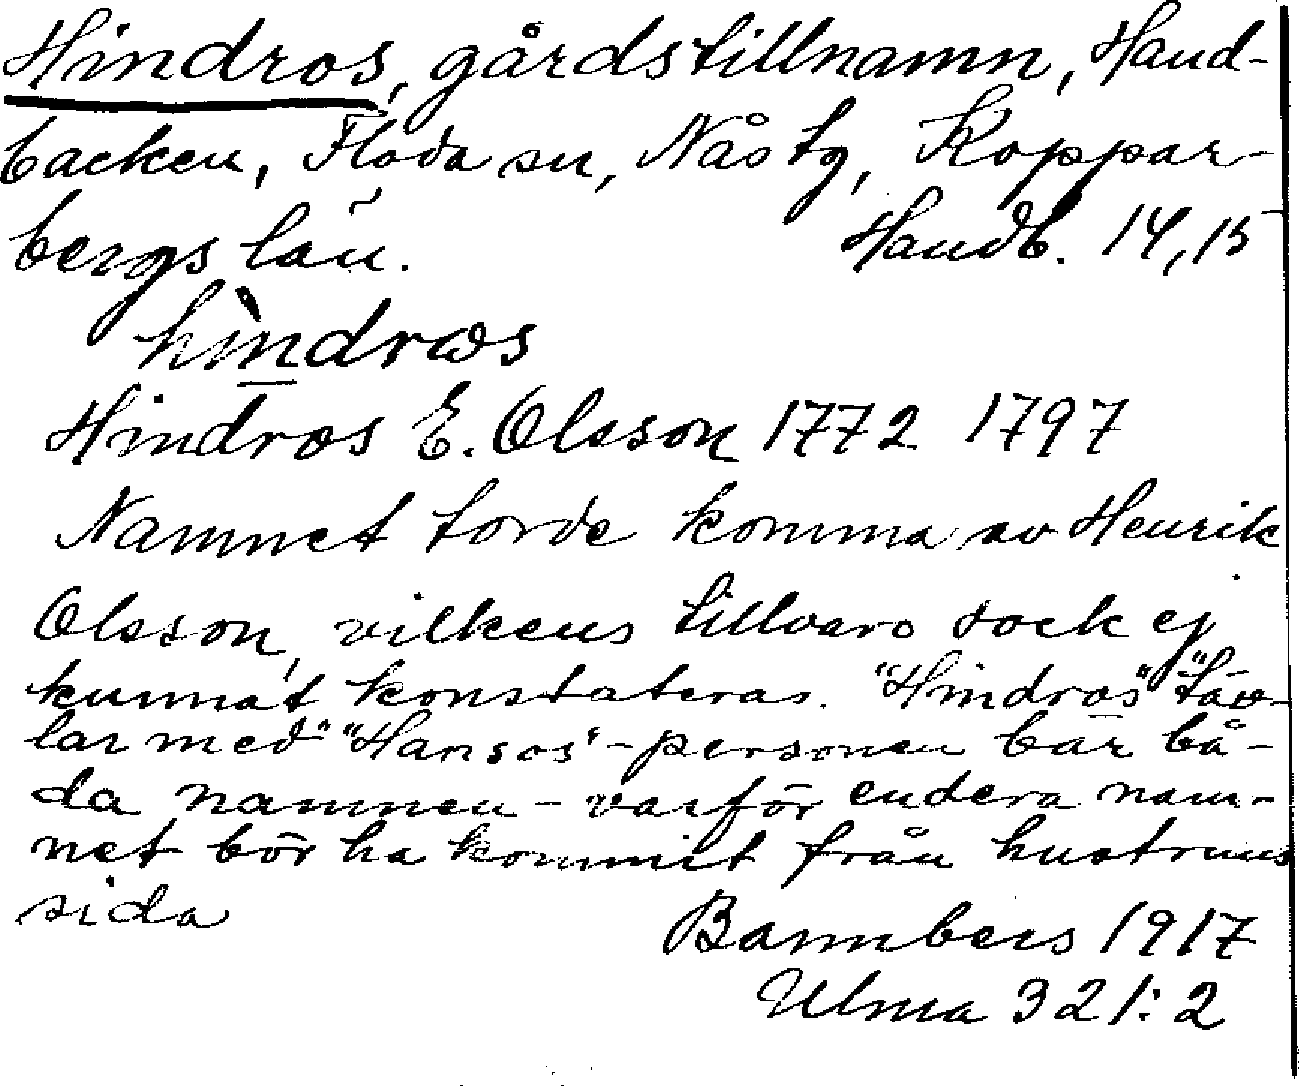 Hindros, gårdstillnamn, Hand-
backen, Floda sn, Nås tg, Koppar-
bergs län. Handb. 14, 15
hìndrωs
Hindros E. Olsson 1772 1797
Namnet torde komma av Henrik
Olsson, vilkens tillvaro dock ej
kunnat konstateras. "Hindros" "täv-
lar med" "Hansos" - personen bär bå-
da namnen - varför endera nam-
net bör ha kommit från hustruns
sida
Bannbers 1917
Ulma 321:2